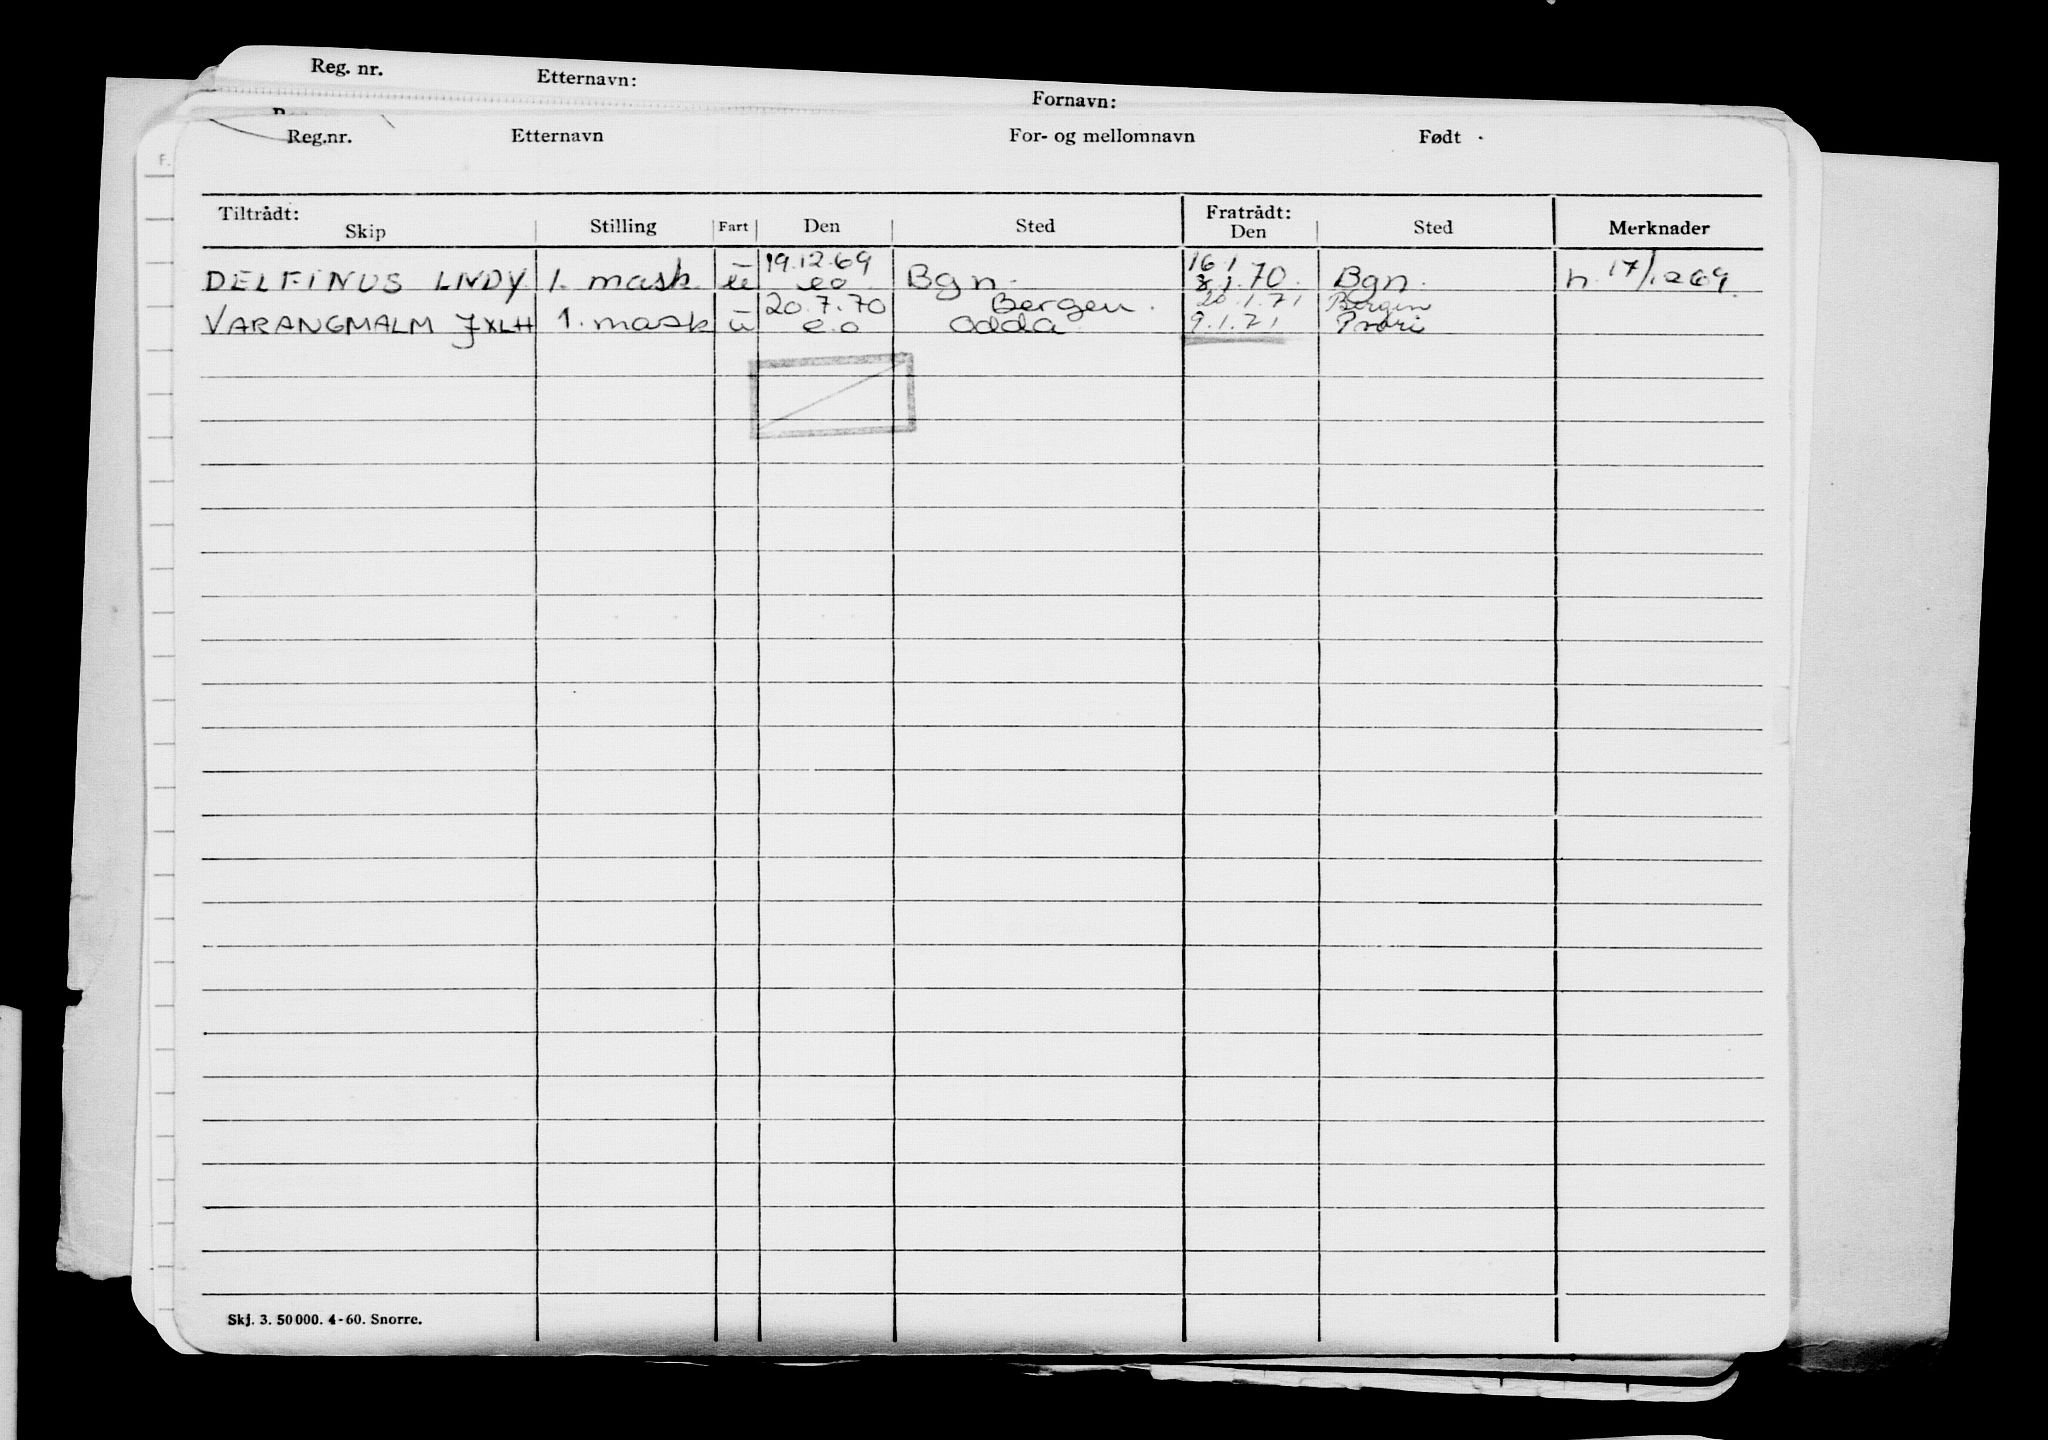 Reg. nr. Etternavn: Fornavn:
Reg.nr. Etternavn For- og mellomnavn Født
Tiltrådt: Fratrådt:
Skip Stilling Fart Den Sted Den Sted Merknader
19.12.69 16.1
DELFINUS LNDY 1. mask. u eo Bgn. 70. Bgn. h. 17/12 69.
20.7.70 Bergen. 20.1.71 Bergen
VARANGMALM JXLH 1. mask u e.o Odda 9.1.71
Skj. 3. 50 000. 4-60. Snorre.